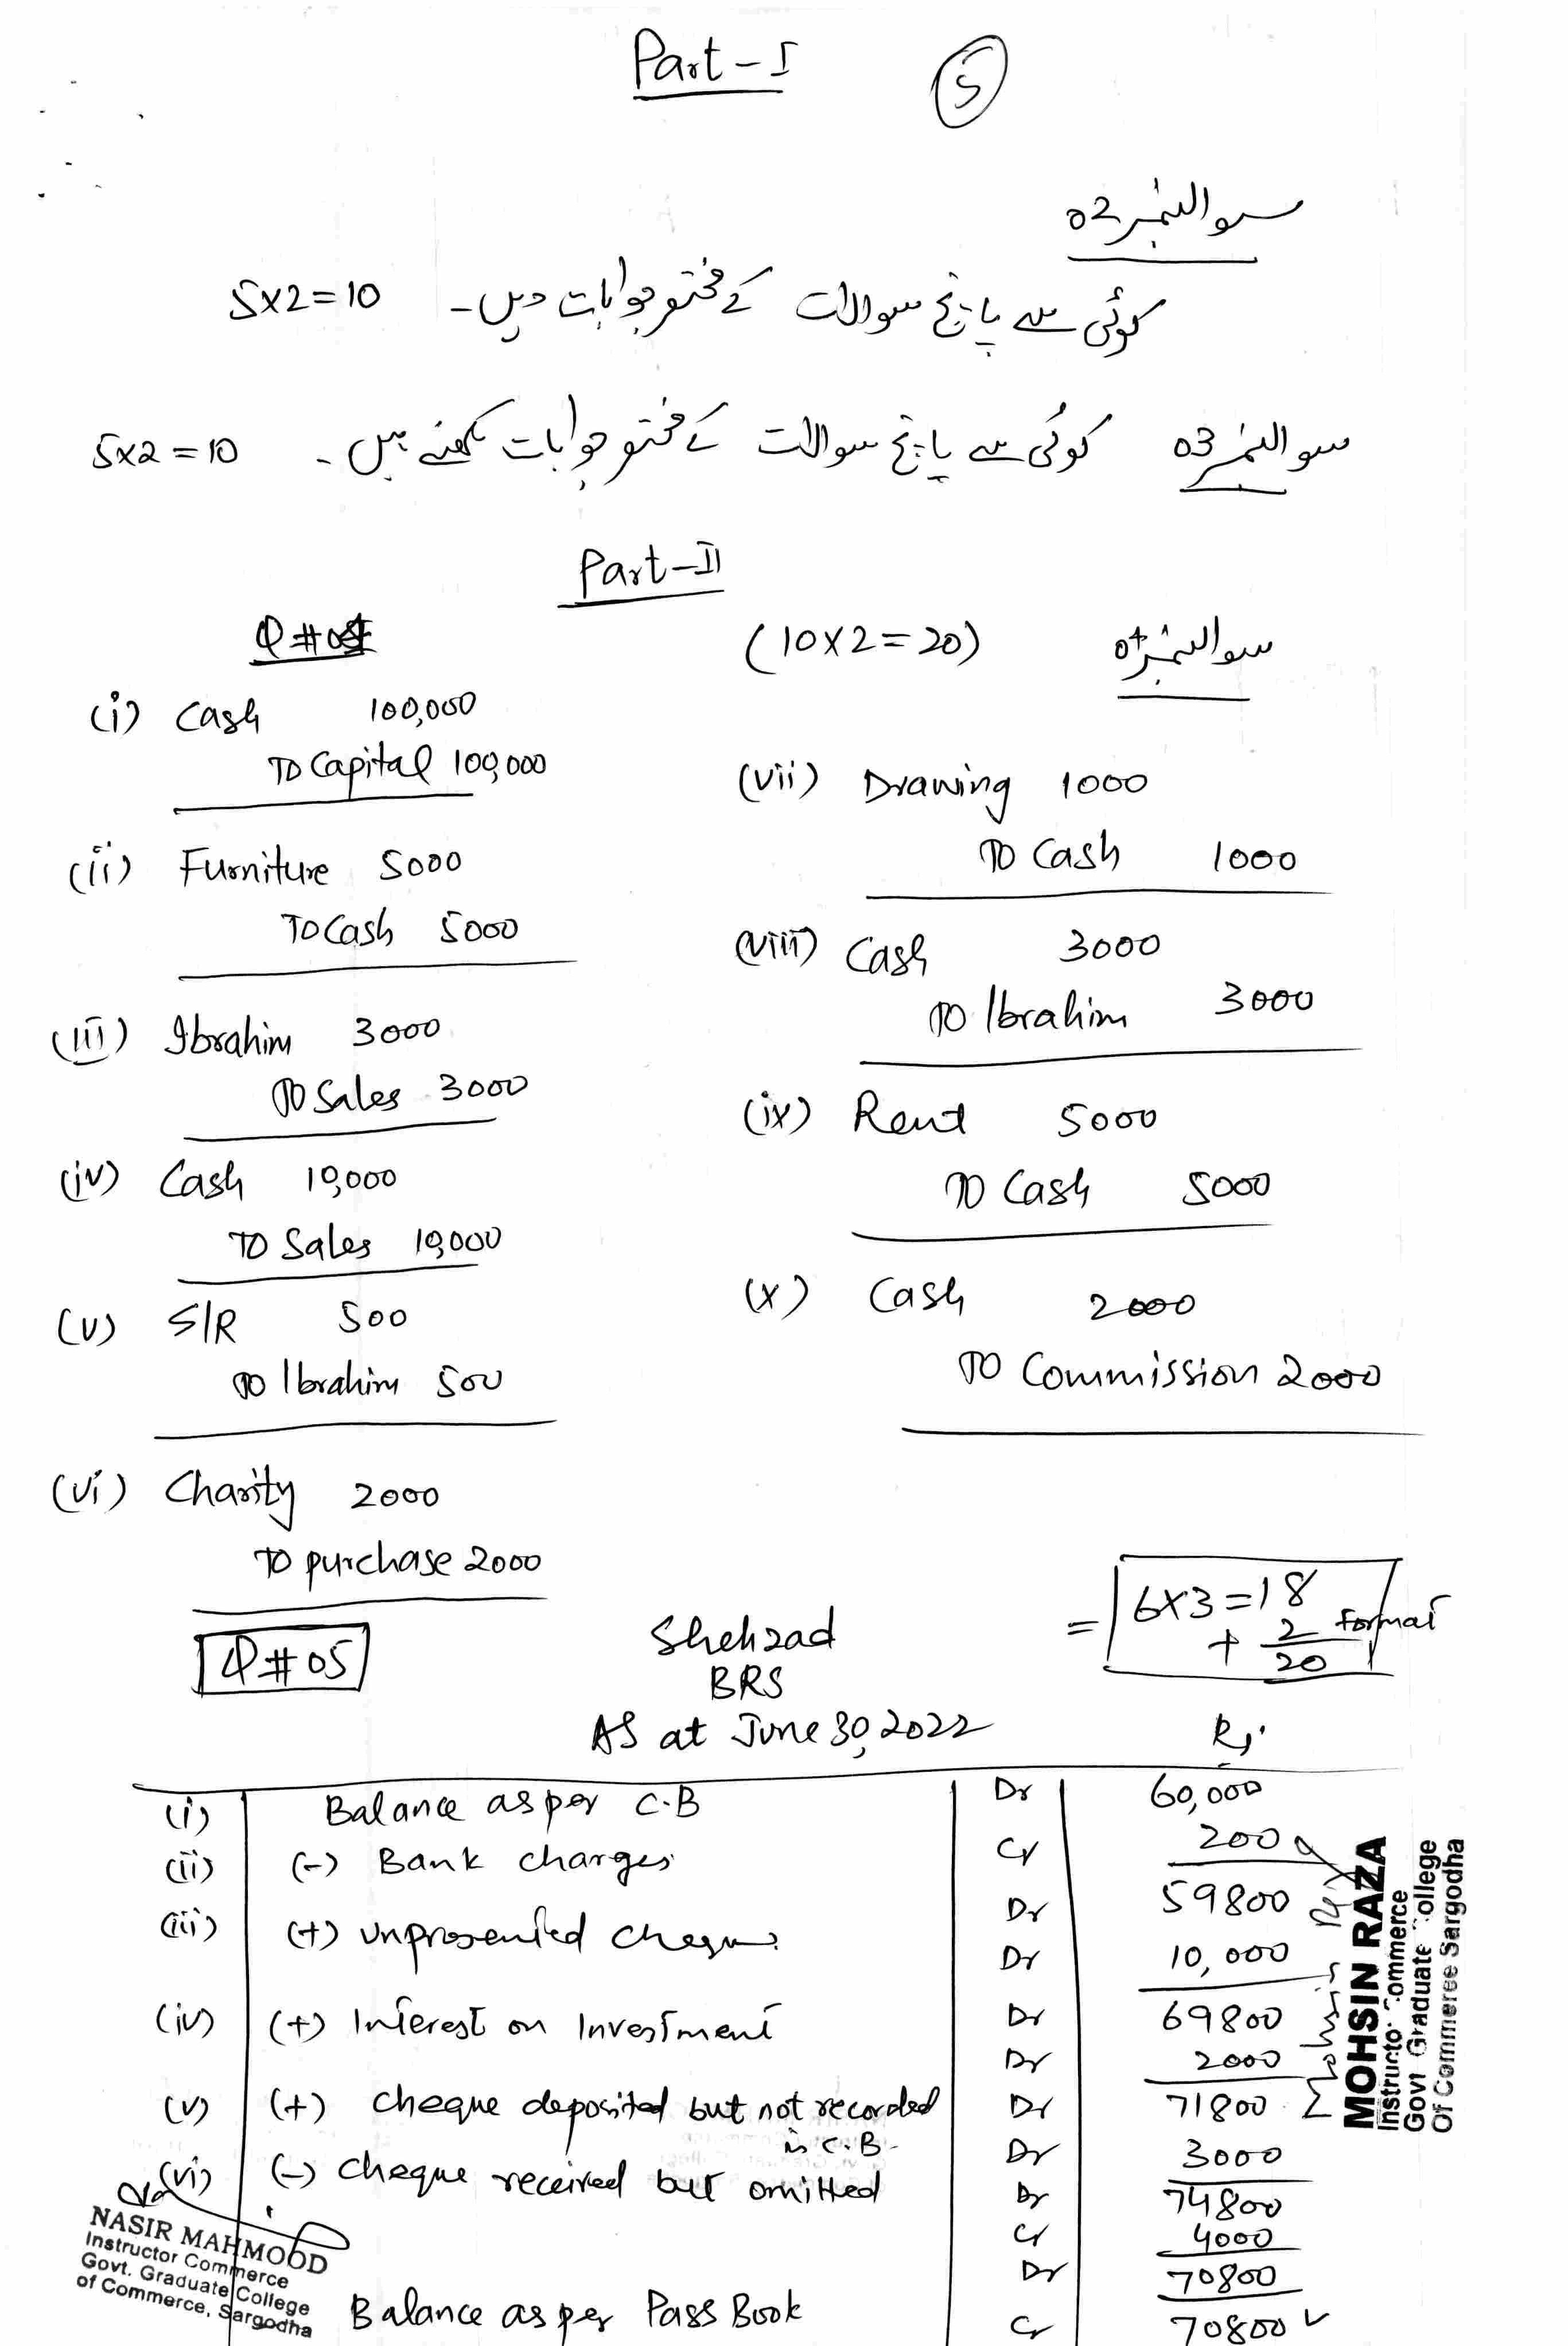 Part-I
5
سوال نمبر 02
کوئی سے پانچ سوالات کے مختصر جوابات دیں۔ 5x2=10
سوال نمبر 03 کوئی سے پانچ سوالات کے مختصر جوابات لکھنے ہیں۔ 5x2=10
Part-II
Q#04 (10x2=20) سوال نمبر 04
(i) Cash 100,000
To Capital 100,000
(ii) Furniture 5000
To Cash 5000
(iii) Ibrahim 3000
To Sales 3000
(iv) Cash 10,000
To Sales 10,000
(v) S/R 500
To Ibrahim 500
(vi) Charity 2000
To purchase 2000
(vii) Drawing 1000
To Cash 1000
(viii) Cash 3000
To Ibrahim 3000
(ix) Rent 5000
To Cash 5000
(x) Cash 2000
To Commission 2000
Q#05
= 6x3=18
+ 2 Format
20
Shehzad
BRS
AS at June 30, 2022
Rs.
(i) Balance as per C.B Dr 60,000
(ii) (-) Bank charges Cr 200
Dr 59800
(iii) (+) unpresented cheques Dr 10,000
Dr 69800
(iv) (+) Interest on Investment Dr 2000
Dr 71800
(v) (+) cheque deposited but not recorded in C.B. Dr 3000
Dr 74800
(vi) (-) cheque received but omitted Cr 4000
Dr 70800
Balance as per Pass Book Cr 70800
MOHSIN RAZA
Instructor Commerce
Govt Graduate College
Of Commerce Sargodha
NASIR MAHMOOD
Instructor Commerce
Govt. Graduate College
of Commerce, Sargodha